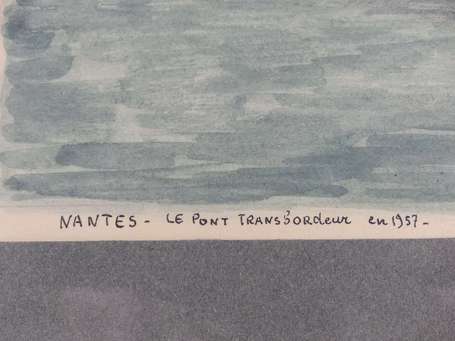 NANTES - LE PONT TRANSBORDEUR en 1957 -